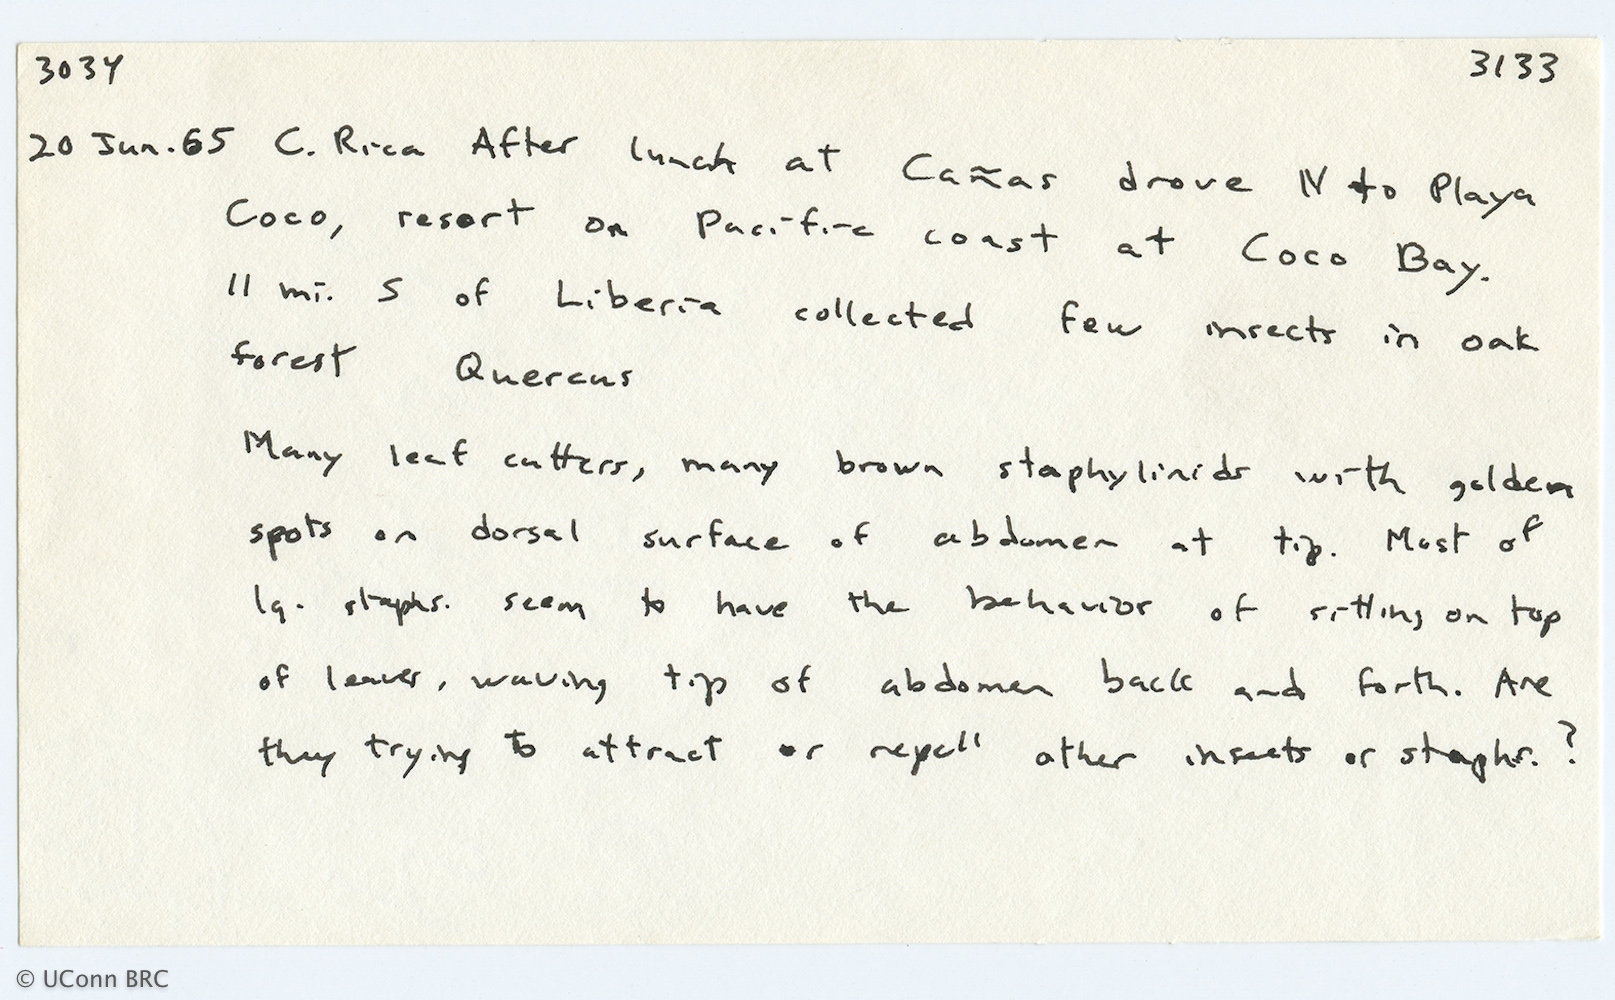 3034 3133
20 Jun. 65 C. Rica After lunch at Cañas drove N to Playa
Coco, resort on Pacific coast at Coco Bay.
11 mi. S of Liberia collected few insects in oak
forest Quercus
Many leaf cutters, many brown staphylinids with golden
spots on dorsal surface of abdomen at tip. Most of
lg. staphs. seem to have the behavior of sitting on top
of leaves, waving tip of abdomen back and forth. Are
they trying to attract or repell other insects or staphs.?
© UConn BRC